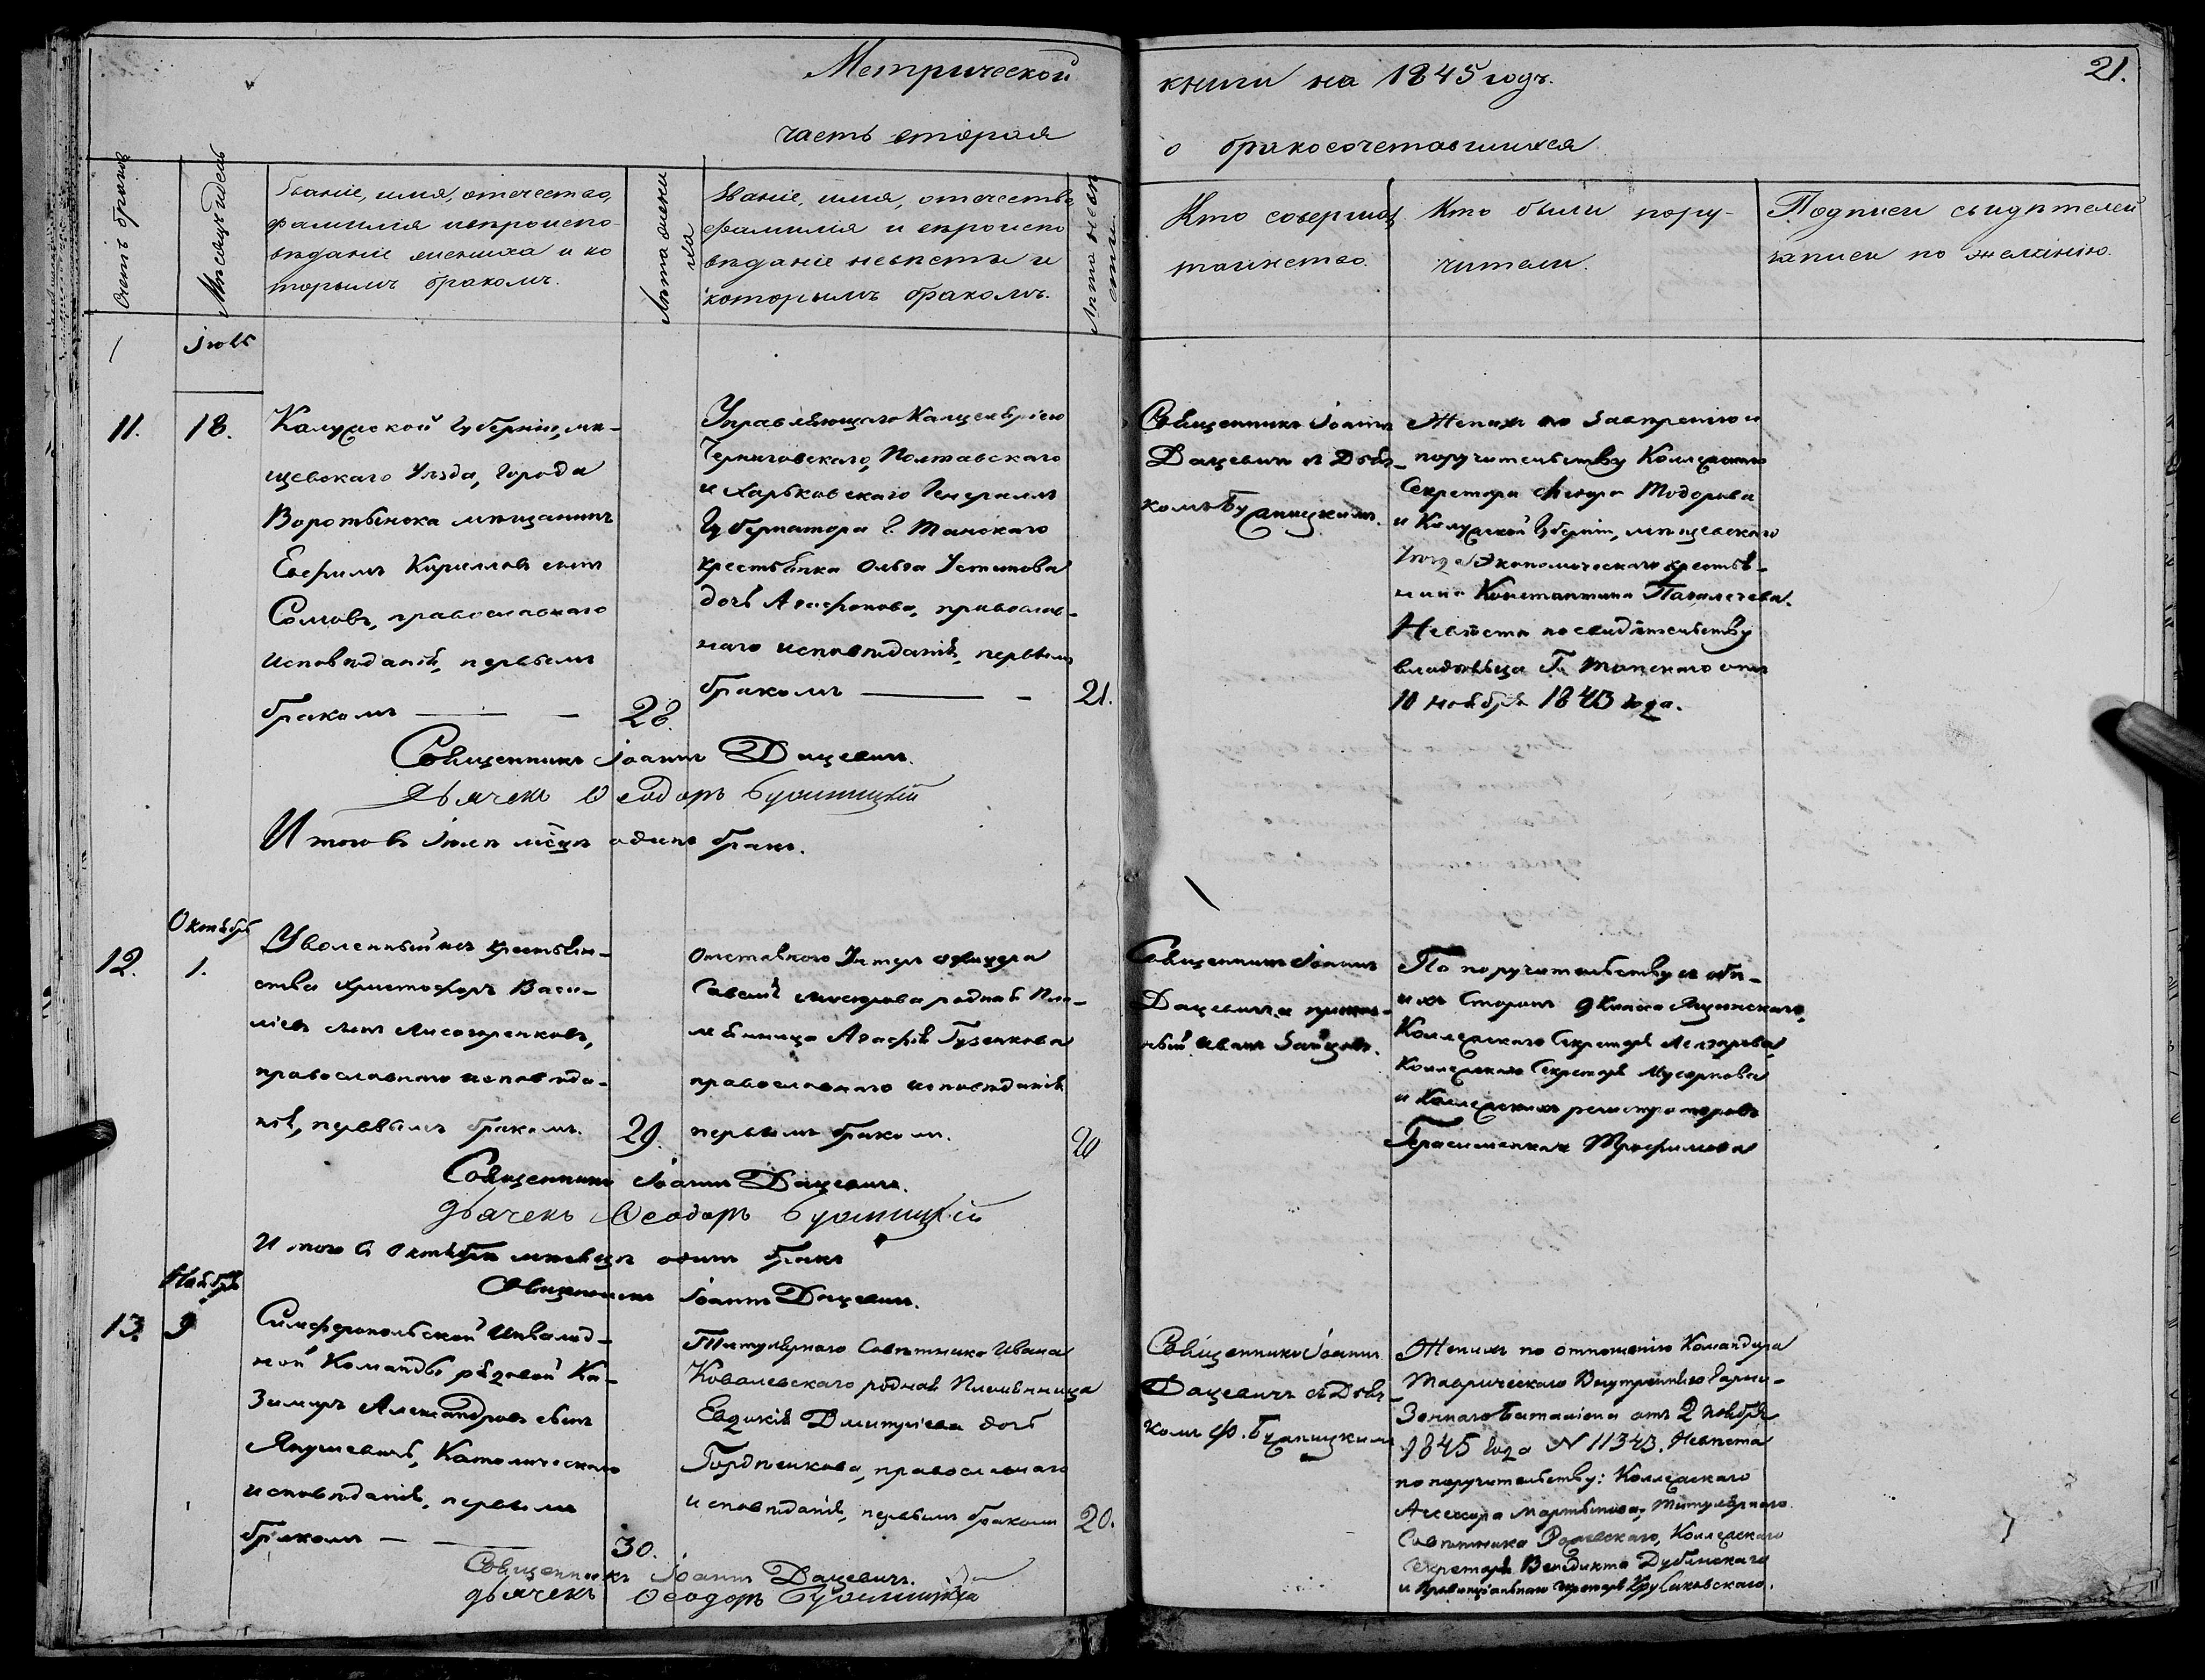 Метрической
часть вторая
книги на 1845 годъ.
21.
о бракосочетавшихся
Счетъ браковъ
Мѣсяцъ и день
Званіе, имя, отечество,
фамилія и вѣроиспо-
вѣданіе жениха и ко
торымъ бракомъ.
Лѣта жени
ха
Званіе, имя, отечество,
фамилія и вѣроиспо
вѣданіе невѣсты и
которымъ бракомъ.
Лѣта невѣ
сты
Кто совершал
таинство.
Кто были пору-
чители.
Подписи свидѣтелей
записи по желанію.
Іюль
11.
18.
Калужской Губерніи, мѣ-
щевскаго Уѣзда, города
Воротынска мѣщанинъ
Евфимъ Кирилловъ сынъ
Сомовъ, православнаго
исповѣданія, первымъ
бракомъ
28.
Управляющаго Канцеляріею
Черниговскаго, Полтавскаго
и Харьковскаго Генералъ
Губернатора Г. Танскаго
крестьянка Ольга Устинова
дочь Агафонова, православ-
наго исповѣданія, первымъ
бракомъ
21.
Священникъ Іоаннъ
Дацевичъ съ Дьяч-
комъ
Женихъ по
поручительству Коллежскаго
Секретаря Федора Тодорова
и Калужской Губерніи, мѣщевскаго
уѣзда Экономическаго крестья-
нина Константина
Невѣста по свидѣтельству
владѣльца Г. Танскаго отъ
10 ноября 1843 года.
Священникъ Іоаннъ Дацевичъ.
Дьячекъ Ѳеодоръ
Итого въ Іюлѣ мѣсяцѣ одинъ бракъ.
Октябрь
12.
1.
Уволенный изъ крестьян-
ства Христофоръ Васи-
ліевъ сынъ Лисогоренковъ,
православнаго исповѣда-
нія, первымъ бракомъ.
29.
Отставнаго Унтеръ офицера
Савелія родная Пле-
мянница Агафія Гузенкова
православнаго исповѣданія
первымъ бракомъ.
20
Священникъ Іоаннъ
Дацевичъ и
Иванъ Зайцовъ.
По поручительству съ обѣ-
ихъ Сторонъ
Коллежскаго Секретаря
Коллежскаго Секретаря
и Коллежскихъ регистраторовъ
Герасименка и Трофимова
Священникъ Іоаннъ Дацевичъ.
Дьячекъ Ѳеодоръ
Итого въ Октябрѣ мѣсяцѣ одинъ бракъ
Священникъ Іоаннъ Дацевичъ.
Ноябрь
13.
9
Симферопольской Инвалид-
ной Команды рядовой Ка-
зимиръ Александровъ сынъ
Янушевичъ, Католическаго
исповѣданія, первымъ
бракомъ
30.
Титулярнаго Совѣтника Ивана
Ковалевскаго родная Племянница
Евдокія Дмитріева дочь
Гордѣенкова, православнаго
исповѣданія, первымъ бракомъ
20.
Священникъ Іоаннъ
Дацевичъ съ Дьяч-
комъ Ф.
Женихъ по отношенію Командира
Таврическаго Внутренняго Гарни-
зоннаго Баталіона отъ 2 ноября
1845 года № 11343. Невѣста
по поручительству: Коллежскаго
Асессора Мартынова, Титулярнаго
Совѣтника Коллежскаго
Секретаря Венедикта Дублянскаго
и Провинціальнаго Секретаря
Священникъ Іоаннъ Дацевичъ.
Дьячекъ Ѳеодоръ